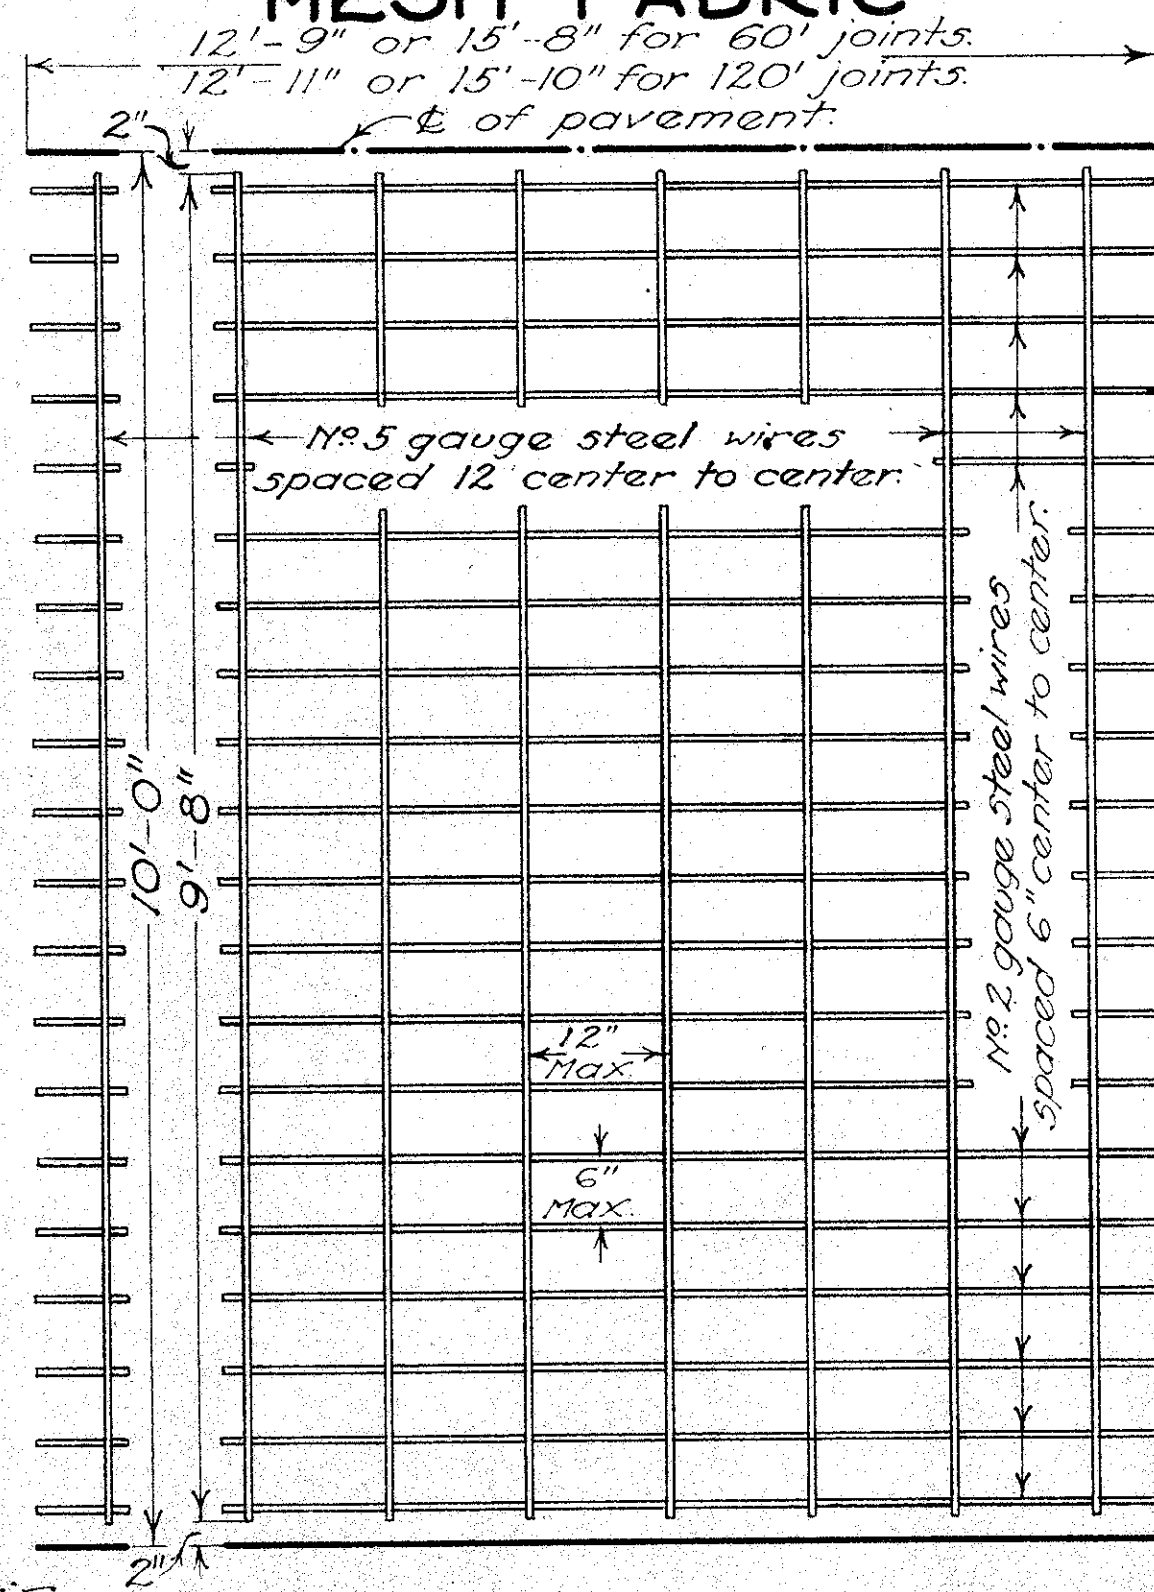 MESH FABRIC
12'-9" or 15'-8" for 60' joints.
12'-11" or 15'-10" for 120' joints.
℄ of pavement.
2"
Nº 5 gauge steel wires
spaced 12 center to center.
10'-0"
9'-8"
Nº 2 gauge steel wires
spaced 6" center to center.
12"
Max.
6"
Max.
2"